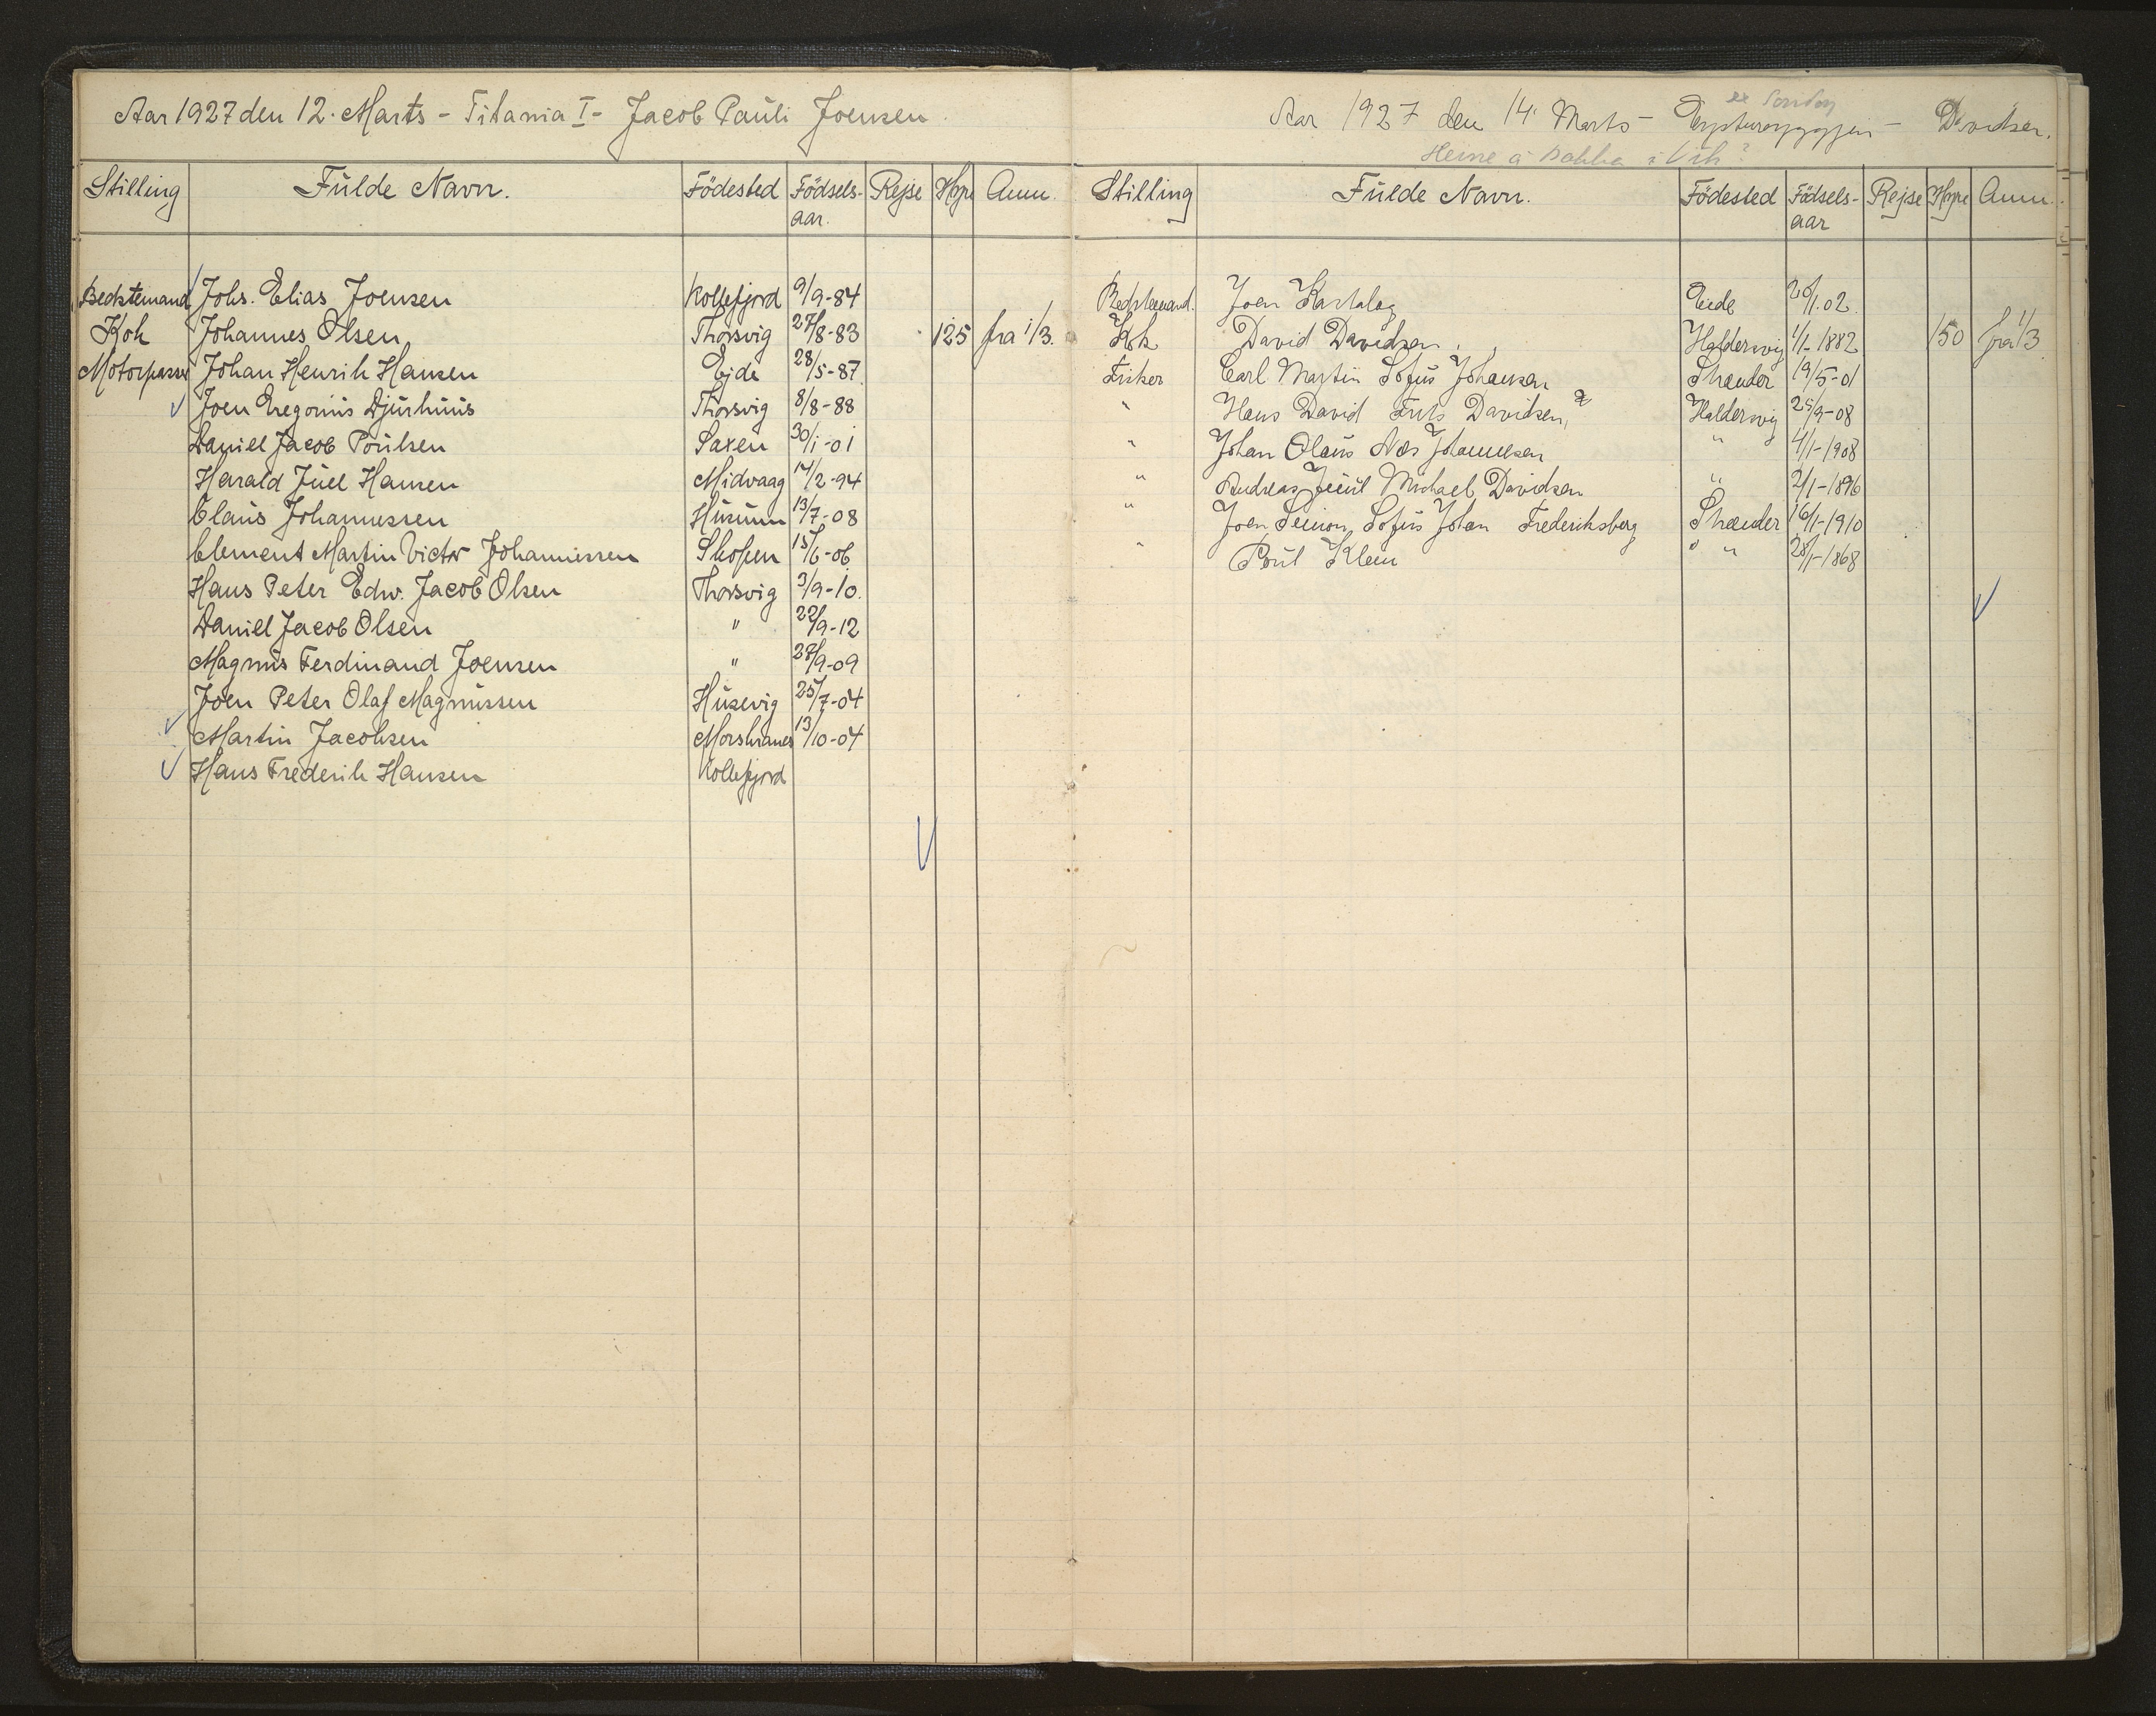 Aar 1927 den 12. Marts - Titania I - Jacob Pauli Joensen
Stilling Fulde Navn. Födested Födsels-aar. Rejse Hyre Anm.
Bedstemand Johs. Elias Joensen Kollefjord 9/9-84
Kok Johannes Olsen Thorsvig 27/8-83 125 fra 1/3.
Motorpasser Johan Henrik Hansen Ejde 28/5-87
Joen Gregorius Djurhuus Thorsvig 8/8-88
Daniel Jacob Poulsen Saxen 30/1-01
Harald Juel Hansen Midvaag 14/2-94
Claus Johannessen Husum 13/7-08
Clement Martin Victor Johannissen Skopen 15/6-06
Hans Peter Edw. Jacob Olsen Thorsvig 3/9-10.
Daniel Jacob Olsen " 22/9-12
Magnus Ferdinand Joensen " 28/9-09
Joen Peter Olaf Magnussen Husevig 25/7-04
Martin Jacobsen Morskranes 13/10-04
Hans Frederik Hansen Kollefjord
Aar 1927 den 14. Marts - - Davidsen.
Heine á i Vík?
Stilling Fulde Navn. Födested Födsels-aar Rejse Hyre Anm.
Bedstemand. Joen Eide 20/1.02.
Kok David Davidsen Haldersvig 1/1-1882 150 fra 1/3
Fisker Carl Martin Sofus Johansen Strænder 19/5-01
" Hans David Frits Davidsen, Haldersvig 25/9-08
" Johan Olaus Næs Johannesen " 4/1-1908
" Andreas Juul Michael Davidsen " 2/1-1896
" Joen Simon Sofus Johan Frederiksberg Strænder 16/1-1910
" Poul Klein " " 28/1-1868